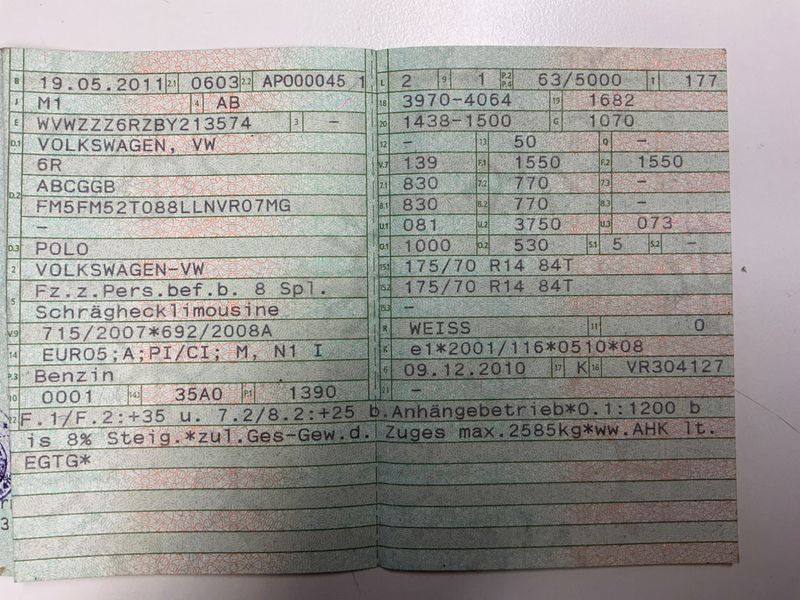 B 19.05.2011 2.1 0603 2.2 AP000045 1
J M1 4 AB
E WVWZZZ6RZBY213574 3 –
D.1 VOLKSWAGEN, VW
6R
D.2 ABCGGB
FM5FM52T088LLNVR07MG
–
D.3 POLO
2 VOLKSWAGEN-VW
5 Fz.z.Pers.bef.b. 8 Spl.
Schräghecklimousine
V.9 715/2007*692/2008A
14 EURO5;A;PI/CI; M, N1 I
P.3 Benzin
10 0001 14.1 35A0 P.1 1390
L 2 9 1 P.2 P.4 63/5000 T 177
18 3970-4064 19 1682
20 1438-1500 G 1070
12 – 13 50 Q –
V.7 139 F.1 1550 F.2 1550
7.1 830 7.2 770 7.3 –
8.1 830 8.2 770 8.3 –
U.1 081 U.2 3750 U.3 073
O.1 1000 O.2 530 S.1 5 S.2 –
15.1 175/70 R14 84T
15.2 175/70 R14 84T
15.3 –
R WEISS 11 0
K e1*2001/116*0510*08
6 09.12.2010 17 K 16 VR304127
21 –
22 F.1/F.2:+35 u. 7.2/8.2:+25 b.Anhängebetrieb*O.1:1200 b
is 8% Steig.*zul.Ges-Gew.d. Zuges max.2585kg*ww.AHK lt.
EGTG*